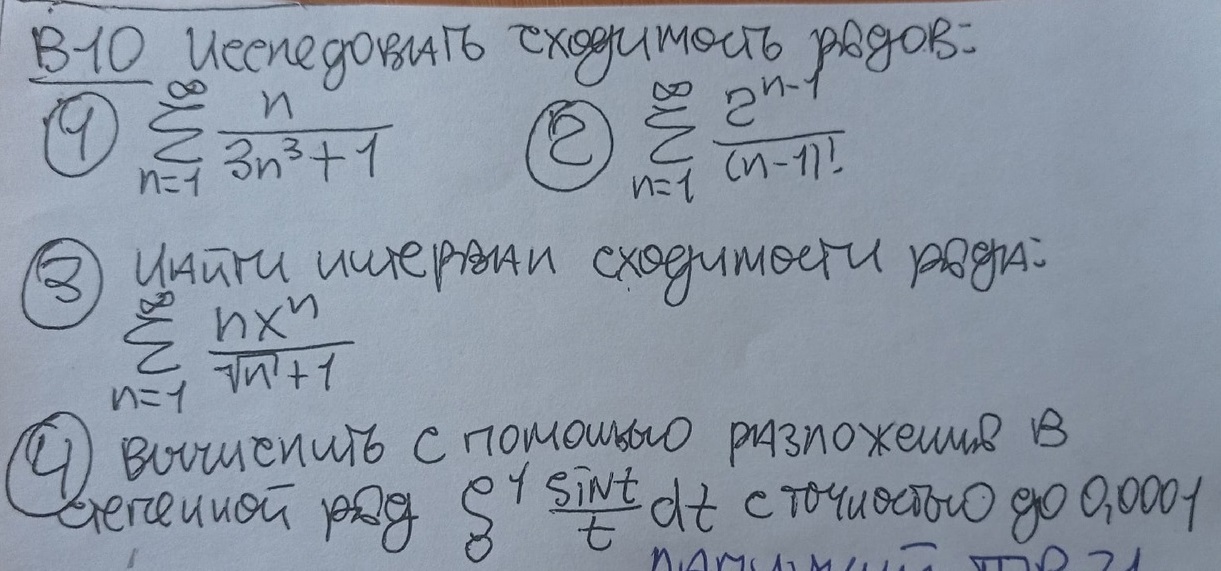 В-10 Исследовать сходимость рядов:
① \sum_{n=1}^{∞} \frac{n}{3n^3+1} ② \sum_{n=1}^{∞} \frac{2^{n-1}}{(n-1)!}
③ Найти интервал сходимости ряда:
\sum_{n=1}^{∞} \frac{nx^n}{\sqrt{n}+1}
④ Вычислить с помощью разложения в
степенной ряд \int_0^1 \frac{sint}{t} dt с точностью до 0,0001